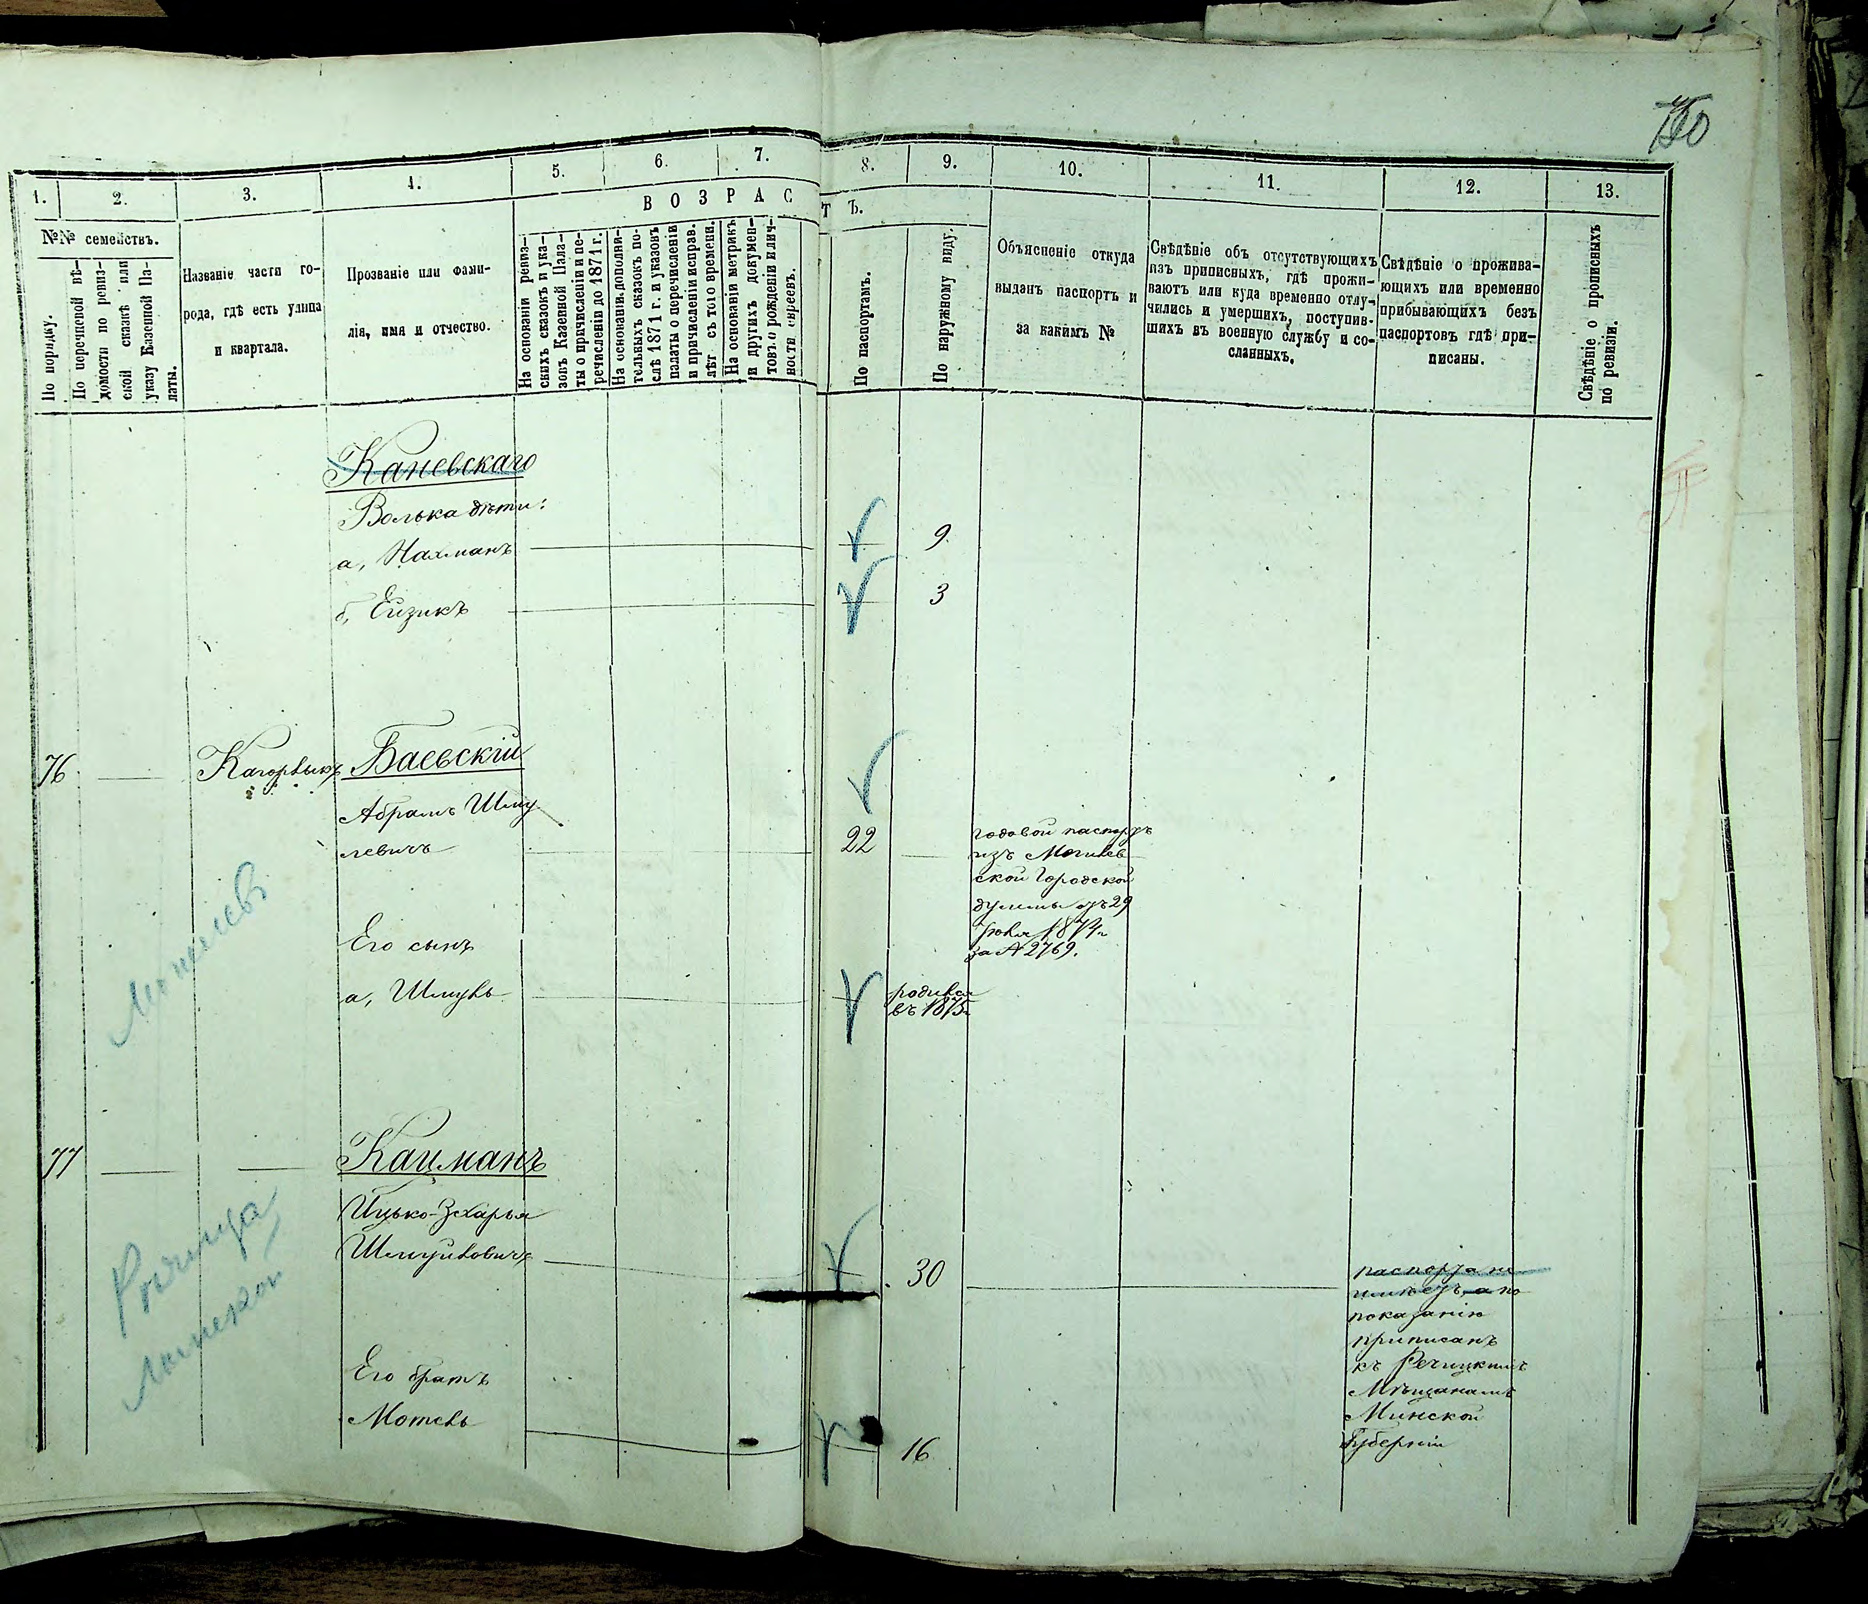 1.
2.
3.
4.
5.
6.
7.
8.
9.
10.
11.
12.
13.
ВОЗРАСТЪ.
№№ семействъ.
По порядку.
По очередной вѣ-
домости по ревиз-
ской сказкѣ или
указу Казенной Па-
латы.
Названіе части го-
рода, гдѣ есть улица
и квартала.
Прозваніе или фами-
лія, имя и отчество.
На основаніи ревиз-
скихъ сказокъ и ука-
зовъ Казенной Пала-
ты о причисленіи и пе-
речисленіи до 1871 г.
На основаніи дополни-
тельныхъ сказокъ по-
слѣ 1871 г. и указовъ
палаты о перечисленіи
и причисленіи исправ.
лѣт съ того времени.
На основаніи метрикъ
и другихъ докумен-
товъ о рожденіи и лич-
ности евреевъ.
По паспортамъ.
По наружному виду.
Объясненіе откуда
выданъ паспортъ и
за какимъ №
Свѣдѣніе объ отсутствующихъ
изъ приписныхъ, гдѣ прожи-
ваютъ или куда временно отлу-
чились и умершихъ, поступив-
шихъ въ военную службу и со-
сланныхъ.
Свѣдѣніе о прожива-
ющихъ или временно
прибывающихъ безъ
паспортовъ гдѣ при-
писаны.
Свѣдѣніе о прописныхъ
по ревизіи.
Каневскаго
Волька дѣти:
а, Нахманъ
9
б, Ейзикъ
3
76
Кагорлыкъ
Баевскій
Абрамъ Шму
левичъ
22
годовой паспортъ
изъ Могилев
ской Городской
думы отъ 29
1874 г.
за № 2769.
Его сынъ
а, Шмуль
родился
въ 1875 г.
Могилевъ
77
Кацманъ
Ицько-Зхарья
Шмуйловичъ
30
паспорта не
имѣетъ, а по
показанію
приписанъ
къ Речицкимъ
Мѣщанамъ
Минской
Губерніи
Его братъ
Мотель
16
Речица
Минской